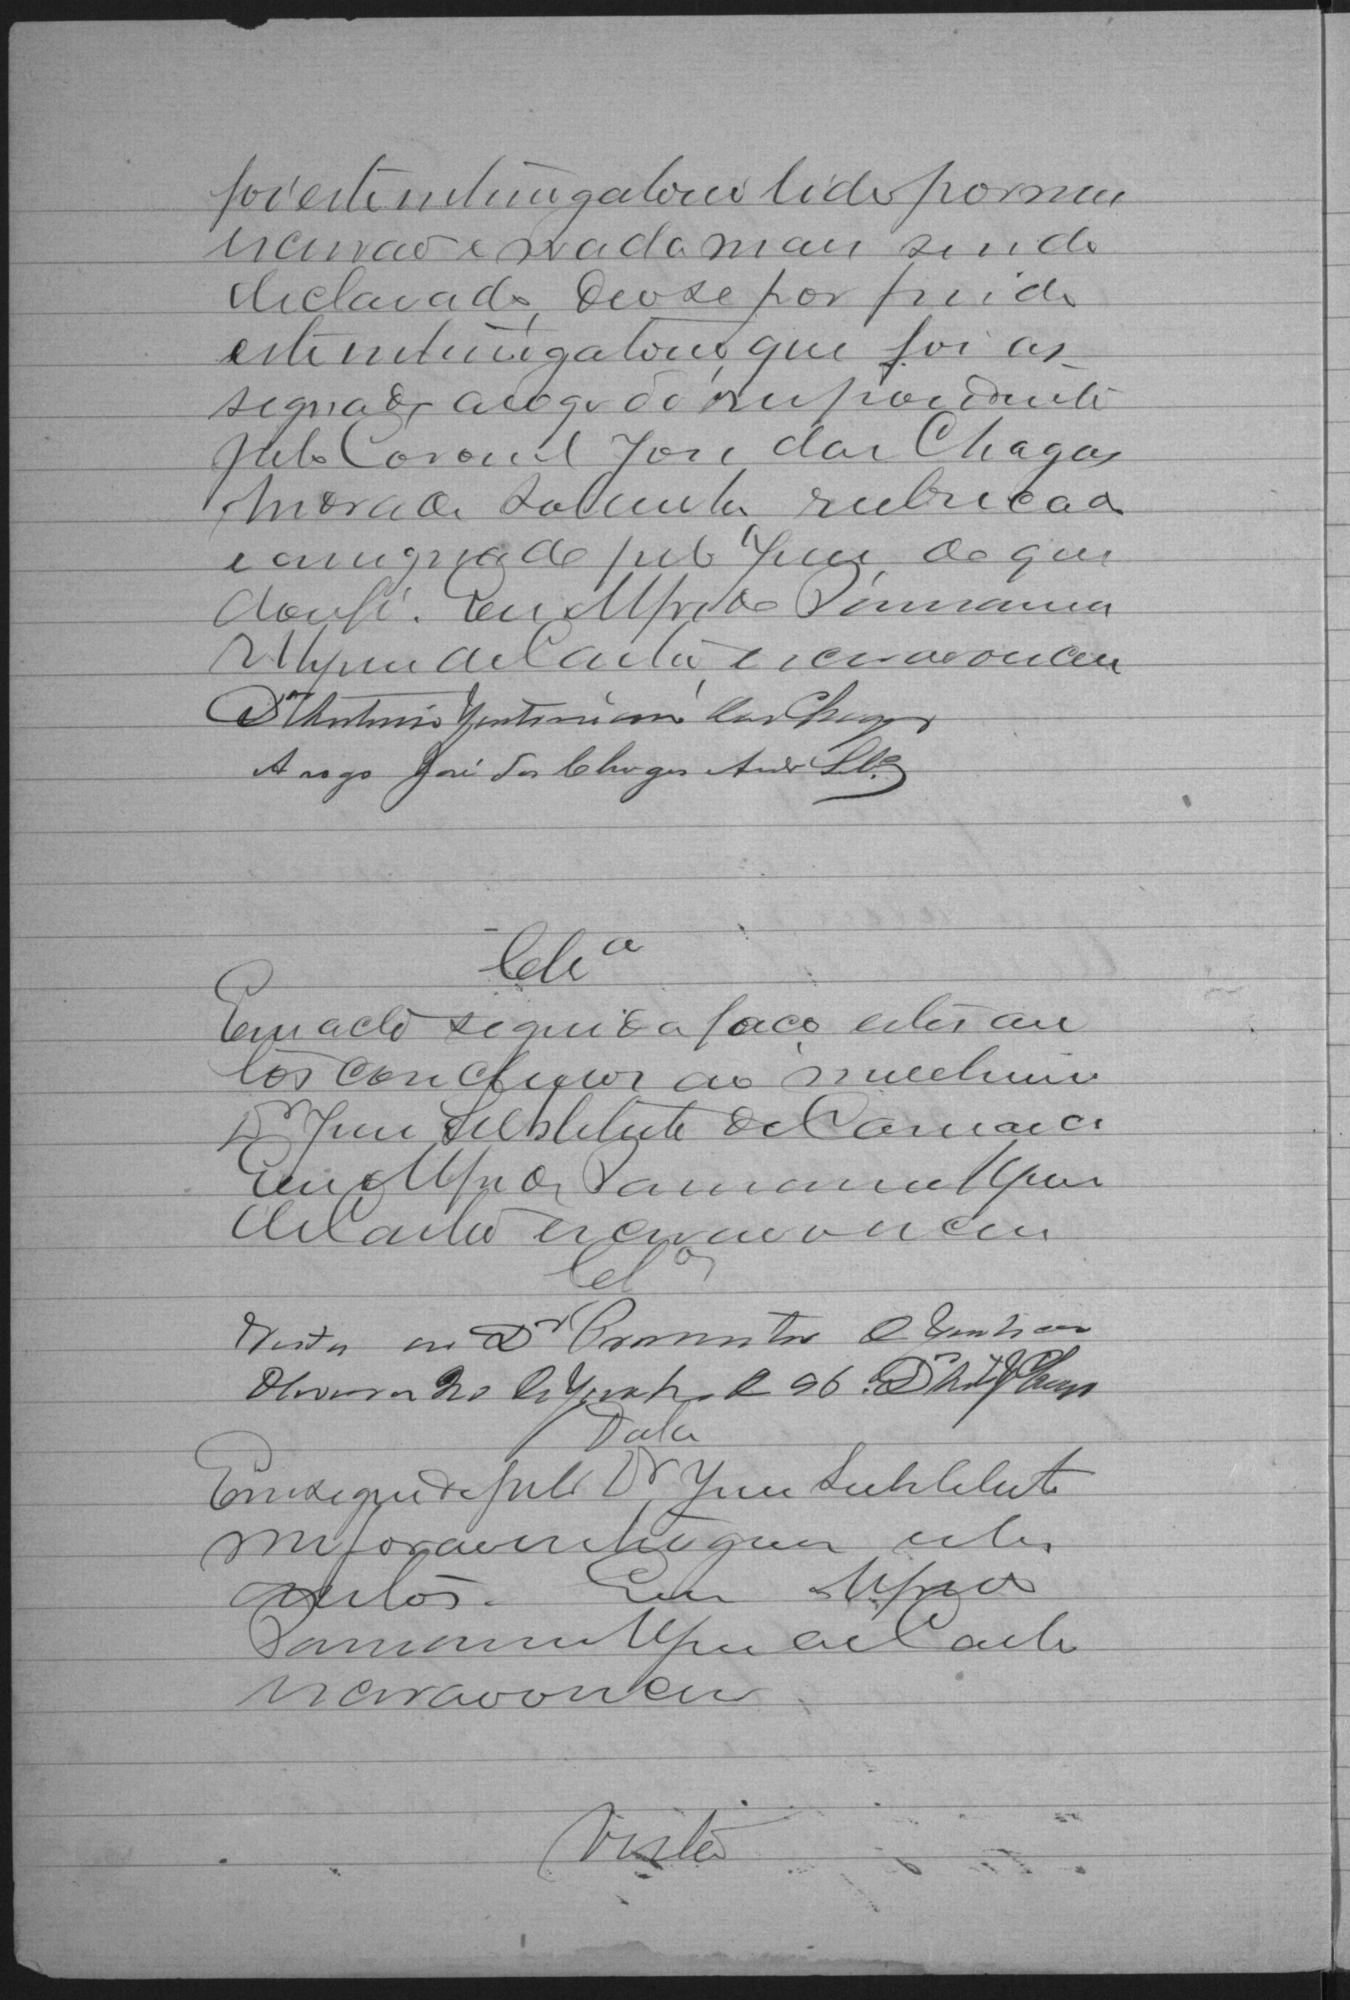 foi este interrogatorio lido por mim
escrivão e nada mais sendo
declarado, deo se por findo
este interrogatorio, que foi as
signado a rogo do respondente
pelo Coronel José das Chagas
Andrade Sobrinho, rubricado
e assignado pelo Juiz, do que
dou fé. Eu Alfredo
de Castro, escrivão o escrevi
Dr Antonio das Chagas
A rogo José das Chagas Andr
Cls.a
Em acto seguido faço estes au
tos conclusos ao meretissimo
Dr Juiz Substituto da Comarca
Eu Alfredo
de Castro escrivão o escrevi
Cls.os
Vista ao Dr Promotor de Justiça
de 96. Dr Chagas
Data
Em seguida pelo Dr Juiz Substituto
me foram entregues estes
autos. Eu Alfredo
de Castro
escrivão o escrevi
Vista